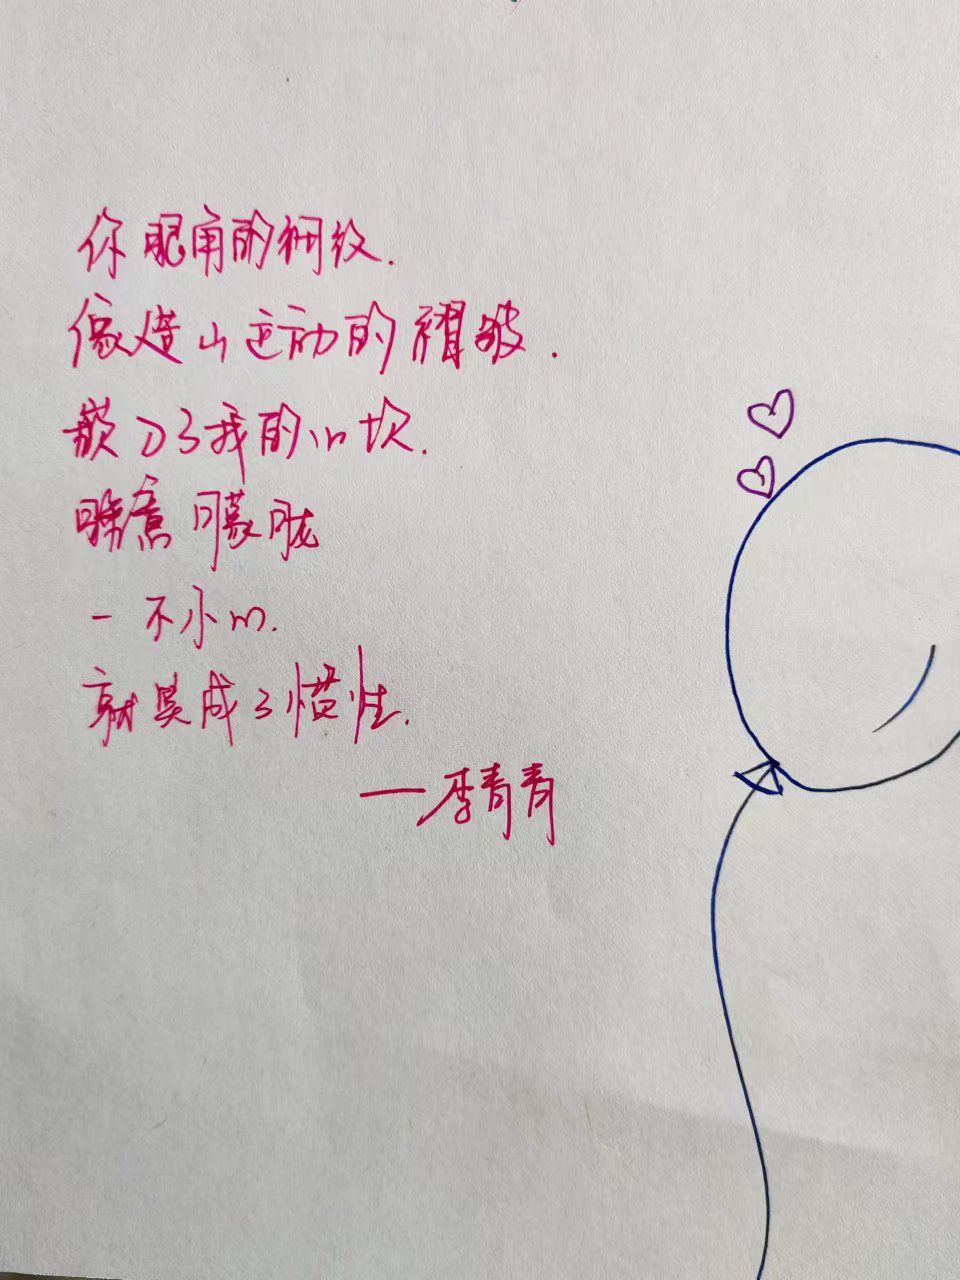 你眼角的细纹.
像造山运动的褶皱.
嵌入了我的心坎.
睡意朦胧
一不小心.
就莫成了惯性.
——李青青